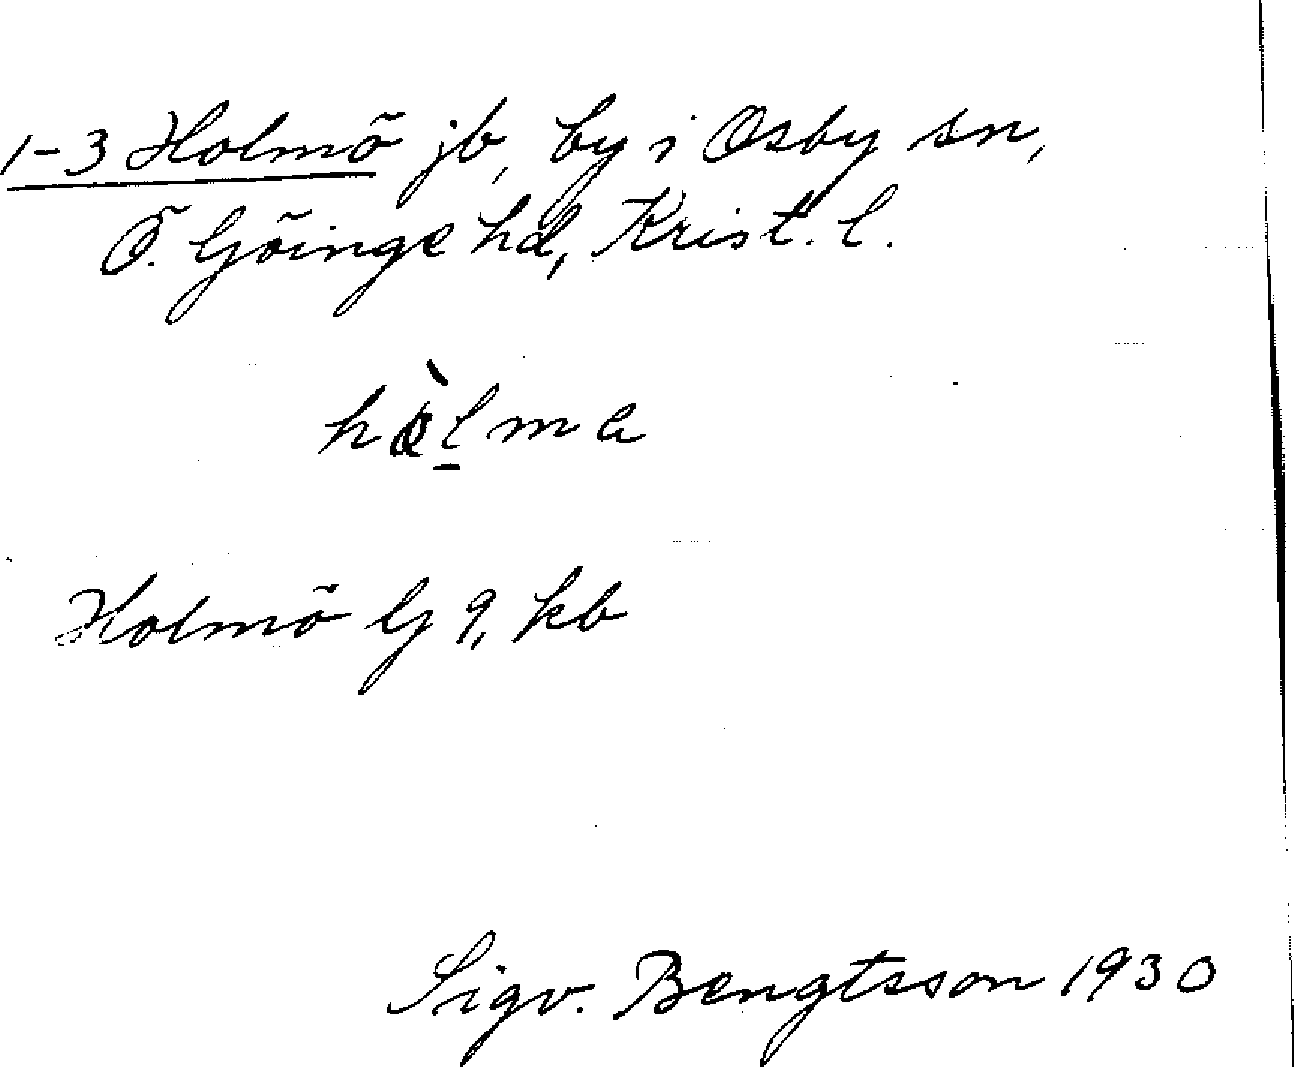 1-3 Holmö jb, by i Osby sn,
Ö. Göinge hd, Krist. l.
hòlma
Holmö G 9, kb
Sigv. Bengtsson 1930